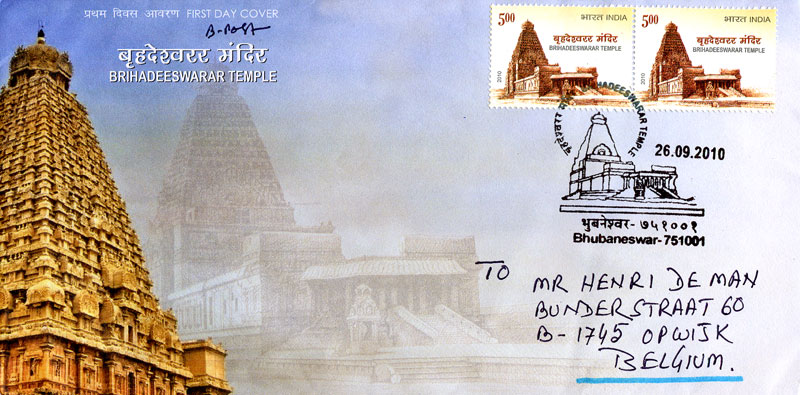 प्रथम दिवस आवरण FIRST DAY COVER
B-POST
बृहदेश्वरर मंदिर
BRIHADEESWARAR TEMPLE
5.00 भारत INDIA
बृहदेश्वरर मंदिर
BRIHADEESWARAR TEMPLE
2010
5.00 भारत INDIA
बृहदेश्वरर मंदिर
BRIHADEESWARAR TEMPLE
2010
बृहदेश्वरर BRIHADEESWARAR TEMPLE
26.09.2010
भुबनेश्वर-७५१००१
Bhubaneswar-751001
TO
MR HENRI DE MAN
BUNDERSTRAAT 60
B-1745 OPWIJK
BELGIUM.